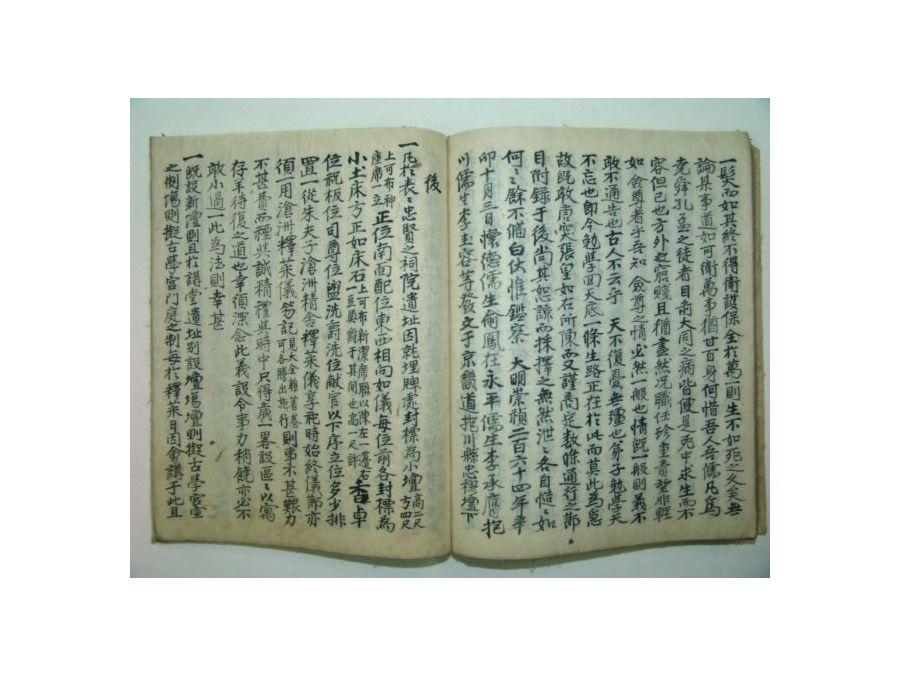 一髮而如其終不得衛護保全於萬一則生不如死之久矣無
論某事道如可衛萬事猶甘百身何惜吾人吾儒凡為
堯舜孔孟之徒者目前大同之病皆便是死中求生而不
容但已也方外之窮賤且猶盡然況職任珍重責望非輕
如僉尊者乎吾知僉尊之情必然一般也情旣一般則義不
敢不通告也古人不云乎天不復憂無彊也弟子勉學天
不忘也卽今勉學回天底一條生路正在於此而莫此為急
故旣敢唐突張皇如在所陳而又謹商定數條通行之節
目附錄于後尚其恕諒而採擇之無然泄〻各自憩〻如
何〻餘不備白伏惟鑑察 大明崇禎二百六十四年辛
卯十月三日懷德儒生 鳳在永平儒生李承膺抱
川儒生李圭容等發文于京畿道抱川縣忠穆壇下
後
一凡於表〻忠賢之祠院遺址因就埋牌處封標為小壇高二尺方四尺
上可布神座席一立正位南面配位東西相向如儀每位前各封標為
小土床方正如床石上可布新潔席聯以陳左一邊右一豆奠爵于其間也高一尺許香卓
位祝板位司尊位盥洗爵洗位献官以下序立位多少排
置一從朱夫子滄洲精舍釋菜儀享祀時始終儀節亦
須一用滄洲釋菜儀笏記見大全雜著卷可各謄出施行則事不甚艱力
不甚費而禮與誠精禮與時中只得歲一畧設區〻以寓
存羊待復之道也幸須深念此義設令事力稍饒亦必不
敢小過一此為法則幸甚
一旣設新壇則且於講堂遺址別設壇場壇則擬古學宮堂
之制場則擬古學宮門庭之制每於釋菜日因會講于此且